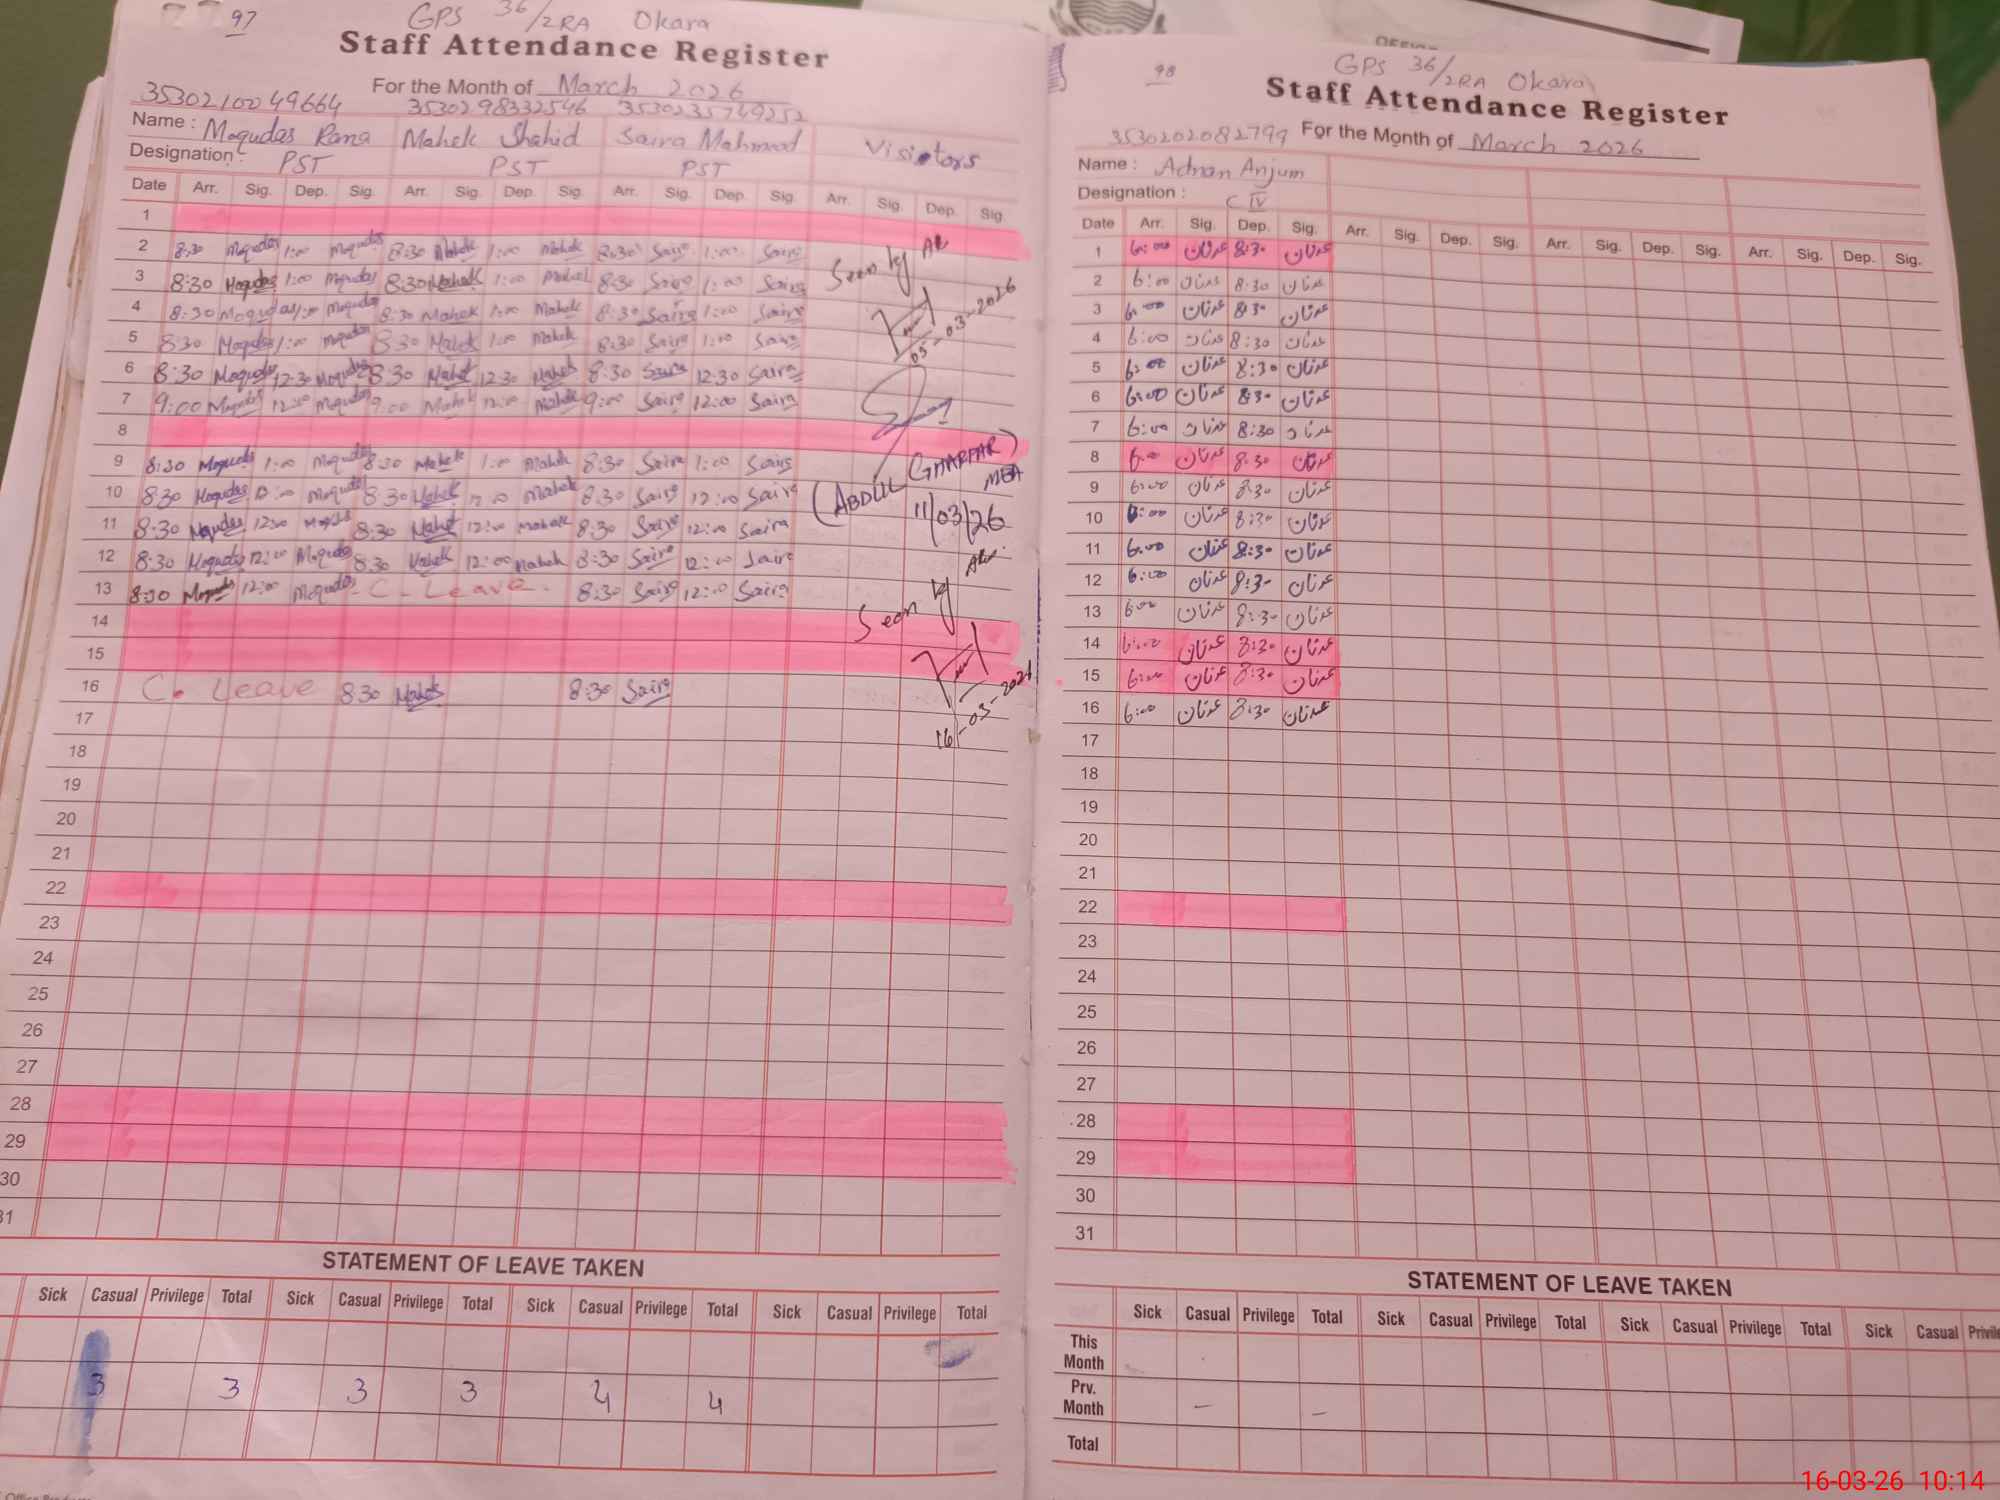 97
GPS 36/2RA Okara
Staff Attendance Register
For the Month of March 2026
3530210049664 3530298332546 3530235749252
Name : Moqudas Rana Mahek Shahid Saira Mahmood Visiotors
Designation - PST PST PST
Date Arr. Sig. Dep. Sig. Arr. Sig. Dep. Sig. Arr. Sig. Dep. Sig. Arr. Sig. Dep. Sig.
1
2 8:30 Moqudas 1:00 Moqudas 8:30 Mahek 1:00 Mahek 8:30 Saira 1:00 Saira
3 8:30 Moqudas 1:00 Moqudas 8:30 Mahek 1:00 Mahek 8:30 Saira 1:00 Saira
4 8:30 Moqudas 1:00 Moqudas 8:30 Mahek 1:00 Mahek 8:30 Saira 1:00 Saira
5 8:30 Moqudas 1:00 Moqudas 8:30 Mahek 1:00 Mahek 8:30 Saira 1:00 Saira
6 8:30 Moqudas 12:30 Moqudas 8:30 Mahek 12:30 Mahek 8:30 Saira 12:30 Saira
7 9:00 Moqudas 12:00 Moqudas 9:00 Mahek 12:00 Mahek 9:00 Saira 12:00 Saira
8
9 8:30 Moqudas 1:00 Moqudas 8:30 Mahek 1:00 Mahek 8:30 Saira 1:00 Saira
10 8:30 Moqudas 12:00 Moqudas 8:30 Mahek 12:00 Mahek 8:30 Saira 12:00 Saira
11 8:30 Moqudas 12:00 Moqudas 8:30 Mahek 12:00 Mahek 8:30 Saira 12:00 Saira
12 8:30 Moqudas 12:00 Moqudas 8:30 Mahek 12:00 Mahek 8:30 Saira 12:00 Saira
13 8:30 Moqudas 12:00 Moqudas C - Leave. 8:30 Saira 12:00 Saira
14
15
16 C. Leave 8:30 Mahek 8:30 Saira
17
18
19
20
21
22
23
24
25
26
27
28
29
30
31
Seen by
05-03-2026
(ABDUL GHAFFAR)
MEA
11/03/26
Seen by
16-03-2026
STATEMENT OF LEAVE TAKEN
Sick Casual Privilege Total Sick Casual Privilege Total Sick Casual Privilege Total Sick Casual Privilege Total
3 3 3 3 4 4
98
GPS 36/2RA Okara
Staff Attendance Register
3530202082799 For the Month of March 2026
Name : Adnan Anjum
Designation : C IV
Date Arr. Sig. Dep. Sig. Arr. Sig. Dep. Sig. Arr. Sig. Dep. Sig. Arr. Sig. Dep. Sig.
1 6:00 عدنان 8:30 عدنان
2 6:00 عدنان 8:30 عدنان
3 6:00 عدنان 8:30 عدنان
4 6:00 عدنان 8:30 عدنان
5 6:00 عدنان 8:30 عدنان
6 6:00 عدنان 8:30 عدنان
7 6:00 عدنان 8:30 عدنان
8 6:00 عدنان 8:30 عدنان
9 6:00 عدنان 8:30 عدنان
10 6:00 عدنان 8:30 عدنان
11 6:00 عدنان 8:30 عدنان
12 6:00 عدنان 8:30 عدنان
13 6:00 عدنان 8:30 عدنان
14 6:00 عدنان 8:30 عدنان
15 6:00 عدنان 8:30 عدنان
16 6:00 عدنان 8:30 عدنان
17
18
19
20
21
22
23
24
25
26
27
28
29
30
31
STATEMENT OF LEAVE TAKEN
Sick Casual Privilege Total Sick Casual Privilege Total Sick Casual Privilege Total Sick Casual
This Month
Prv. Month - -
Total
16-03-26 10:14